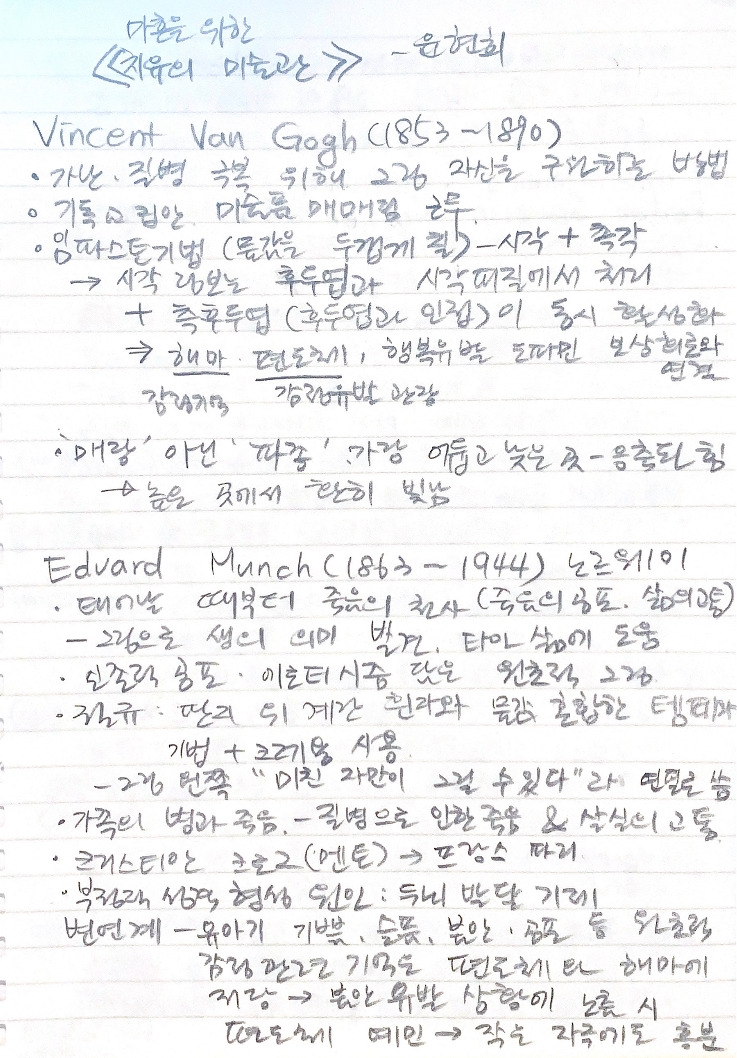 마흔을 위한
《치유의 미술관》 - 윤현희
Vincent Van Gogh (1853~1890)
· 가난·질병 극복 위해 그림 자신을 구원하는 방법
· 기독교 집안 미술품 매매업 종사
· 임파스토기법 (물감을 두껍게 칠) - 시각 + 촉각
→ 시각 정보는 후두엽과 시각피질에서 처리
+ 측후두엽 (후두엽과 인접)이 동시 활성화
⇒ 해마·편도체, 행복유발 도파민 보상회로와
연결
감정기억 감정유발 관장
· '매장' 아닌 '파종' : 가장 어둡고 낮은 곳 - 응축된 힘
→ 높은 곳에서 찬란히 빛남
Edvard Munch (1863 ~ 1944) 노르웨이
· 태어날 때부터 죽음의 천사 (죽음의 공포, 삶의 고통)
- 그림으로 생의 의미 발견, 타인 삶에 도움
· 실존적 공포·에로티시즘 담은 원초적 그림
· 절규 : 판지 위 계란 흰자와 물감 혼합한 템페라
기법 + 크레용 사용
- 그림 왼쪽 "미친 자만이 그릴 수 있다"라 연필로 씀
· 가족의 병과 죽음 - 질병으로 인한 죽음 & 상실의 고통
· 크리스티안 크로그 (멘토) → 프랑스 파리
· 부정적 성격 형성 원인 : 두뇌 발달 기제
변연계 - 유아기 기쁨, 슬픔, 불안·공포 등 원초적
감정 관련 기억은 편도체와 해마에
저장 → 불안 유발 상황에 노출 시
편도체 예민 → 작은 자극에도 흥분